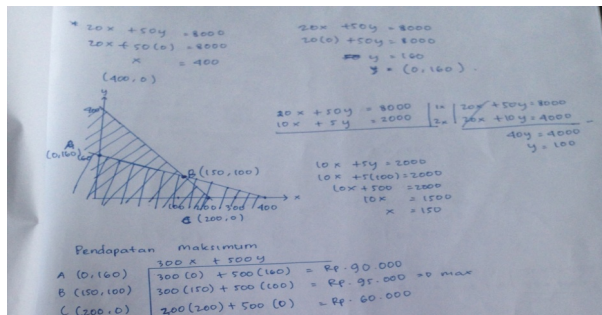 * 20x + 50y = 8000
20x + 50(0) = 8000
x = 400
(400,0)
20x + 50y = 8000
20(0) + 50y = 8000
y = 160
(0,160).
20x + 50y = 8000 | 1x | 20x + 50y = 8000
10x + 5y = 2000 | 2x | 20x + 10y = 4000
40y = 4000
y = 100
10x + 5y = 2000
10x + 5(100) = 2000
10x + 500 = 2000
10x = 1500
x = 150
y
400
A
(0,160)
B (150,100)
100 200 300 400 x
C (200,0)
Pendapatan maksimum
300x + 500y
A (0,160) 300(0) + 500(160) = Rp. 90.000
B (150,100) 300(150) + 500(100) = Rp. 95.000 => max
C (200,0) 200(200) + 500(0) = Rp. 60.000